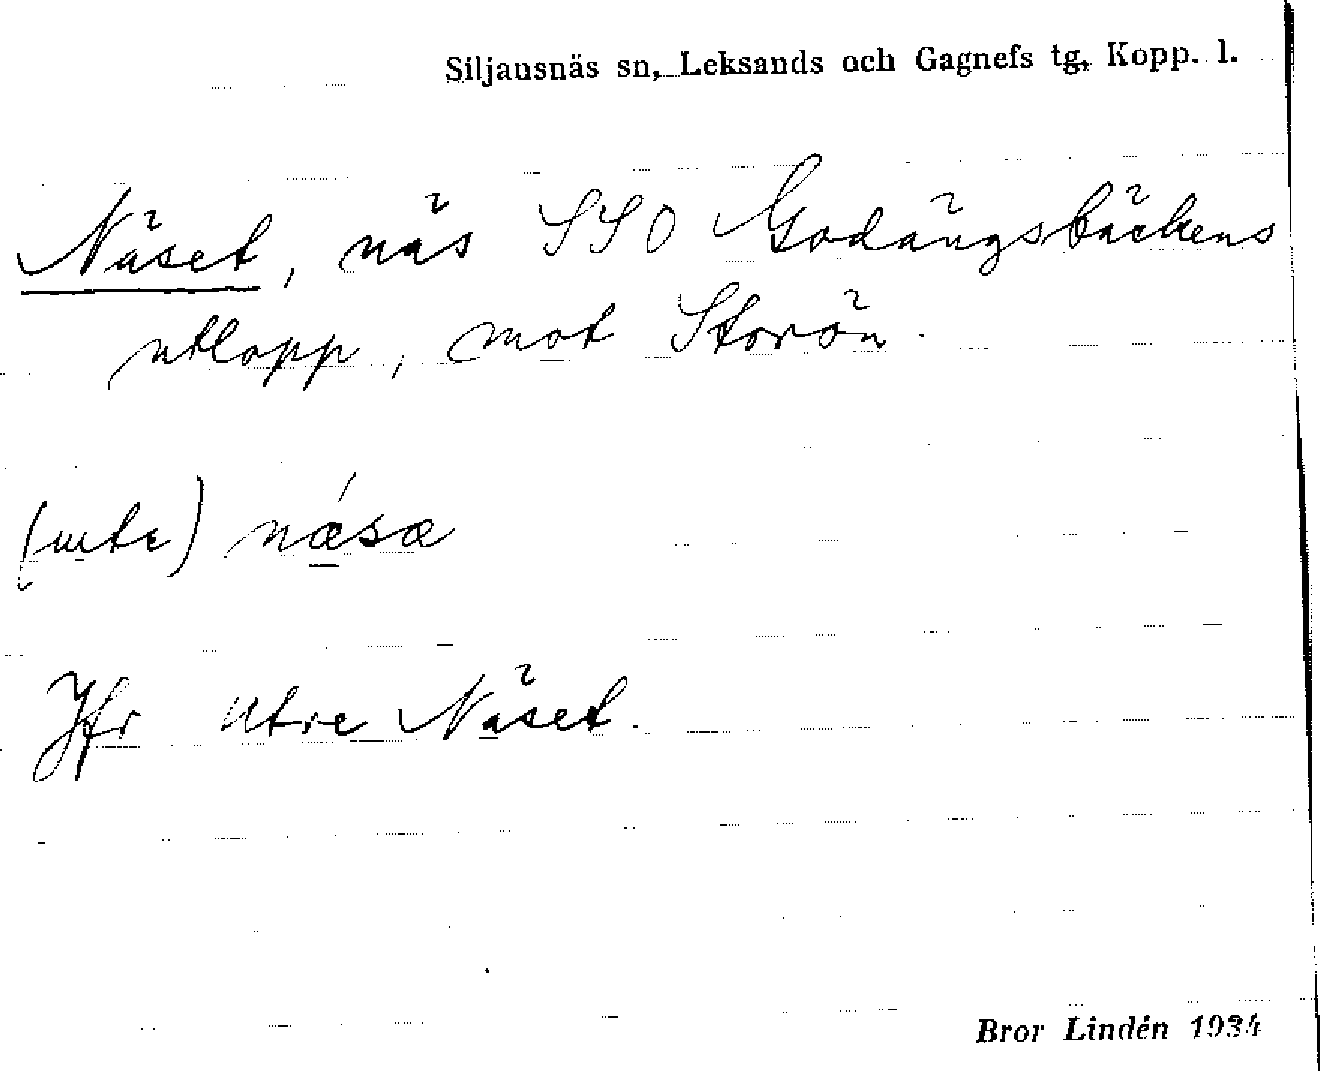 Siljansnäs sn, Leksands och Gagnefs tg, Kopp. l.
Näset, näs SSO Godängsbäckens
utlopp, mot Storön.
(ute) næ´sæ
Jfr Utre Näset.
Bror Lindén 1934